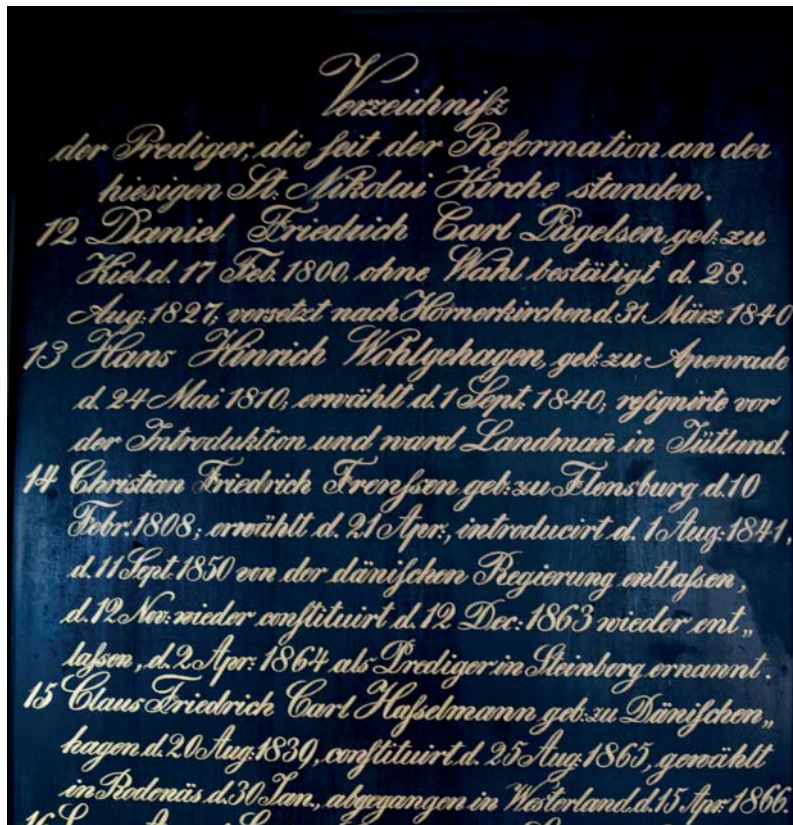 Verzeichniſz
der Prediger, die ſeit der Reformation an der
hiesigen St. Nikolai Kirche standen.
12 Daniel Friedrich Carl Pagelsen geb: zu
Kiel d. 17 Feb: 1800, ohne Wahl bestätigt d. 28.
Aug: 1827, versetzt nach Hörnerkirchen d. 31 März 1840
13 Hans Hinrich Wohlgehagen, geb: zu Apenrade
d. 24 Mai 1810, erwählt d. 1 Sept: 1840, reſignirte vor
der Introduktion und ward Landmañ in Jütland.
14 Christian Friedrich Frenſsen geb: zu Flensburg d. 10
Febr: 1808; erwählt d. 21 Apr:, introducirt d. 1 Aug: 1841,
d. 11 Sept: 1850 von der däniſchen Regierung entlaſsen,
d. 12 Nov: wieder conſtituirt d. 12 Dec: 1863 wieder ent„
laſsen, d. 2 Apr: 1864 als Prediger in Steinberg ernannt.
15 Claus Friedrich Carl Haſselmann geb: zu Däniſchen„
hagen d. 20 Aug: 1839, conſtituirt d. 25 Aug: 1865, gewählt
in Rodenäs d. 30 Jan., abgegangen in Westerland d. 15 Apr: 1866.
16